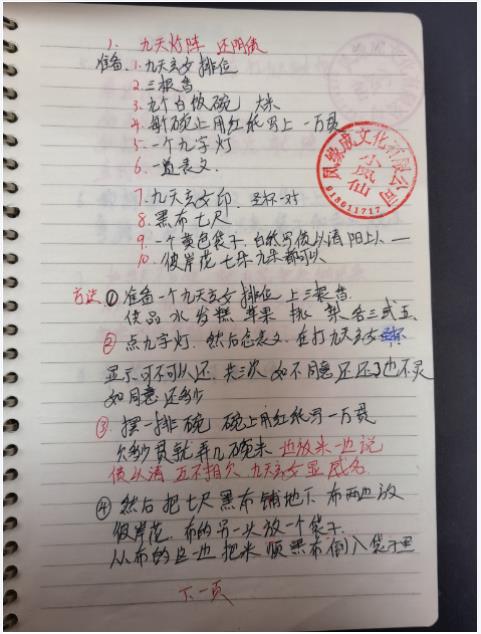 1. 九天灯阵 还阴债
准备.1.九天玄女 排位
2.三根香
3.九个白饭碗 大米
4.每碗上用红纸写上一万贯
5.一个九字灯
6.一道表文.
7.九天玄女印. 圣杯一对
8.黑布七尺
9.一个黄色袋子.白纸写债以清 阳上以一
10.彼岸花 七朵九朵都可以
方法 ① 准备一个九天玄女 排位 上三根香.
供品 水 发糕 苹果 桃 各三或五
② 点九字灯.然后念表文.在打九天玄女
显示可不可以还.共三次 如不同意还 还了也不灵
如同意还多少
③ 摆一排碗 碗上用红纸写一万贯
欠多少贯就弄几碗米 边放米一边说
债以清 互不相欠 九天玄女显威名
④ 然后把七尺黑布铺地下 布两边放
彼岸花.布的另一头放一个袋子.
从布的这一边把米顺黑布倒入袋子里
下一页
凤缘成文化有限公司
小凤仙
018611717